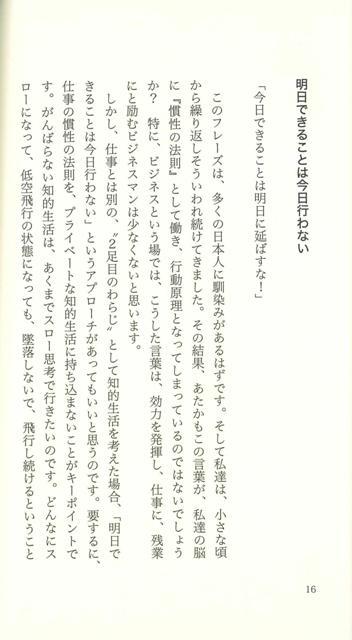 明日できることは今日行わない
「今日できることは明日に延ばすな！」
このフレーズは、多くの日本人に馴染みがあるはずです。そして私達は、小さな頃
から繰り返しそういわれ続けてきました。その結果、あたかもこの言葉が、私達の脳
に『慣性の法則』として働き、行動原理となってしまっているのではないでしょう
か？　特に、ビジネスという場では、こうした言葉は、効力を発揮し、仕事に、残業
にと励むビジネスマンは少なくないと思います。
しかし、仕事とは別の、〝2足目のわらじ〟として知的生活を考えた場合、「明日で
きることは今日行わない」というアプローチがあってもいいと思うのです。要するに、
仕事の慣性の法則を、プライベートな知的生活に持ち込まないことがキーポイントで
す。がんばらない知的生活は、あくまでスロー思考で行きたいのです。どんなにス
ローになって、低空飛行の状態になっても、墜落しないで、飛行し続けるということ
16